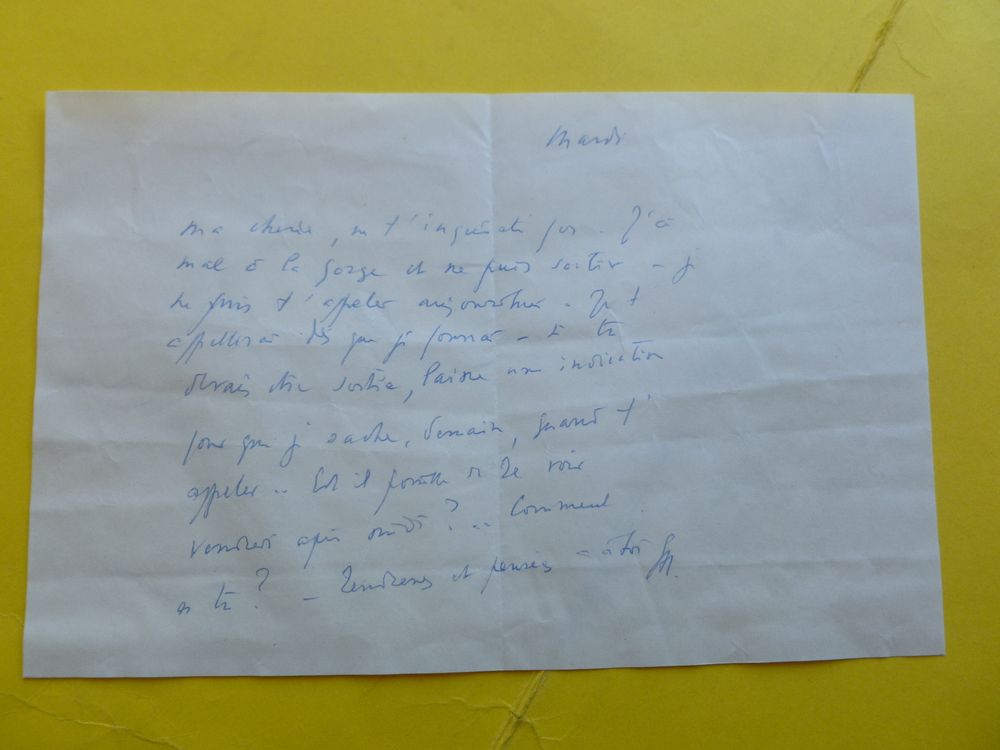 Mardi
ma cherie, ne t'inquiète pas. J'ai
mal à la gorge et ne puis sortir - je
ne puis t'appeler aujourd'hui - Je t'
appellerai dès que je pourrai - si tu
devais être sortie, laisse une indication
pour que je sache, demain, quand t'
appeler - Est il possible de te voir
vendredi après midi ? - Comment
es tu ? - Tendresses et pensées - à toi